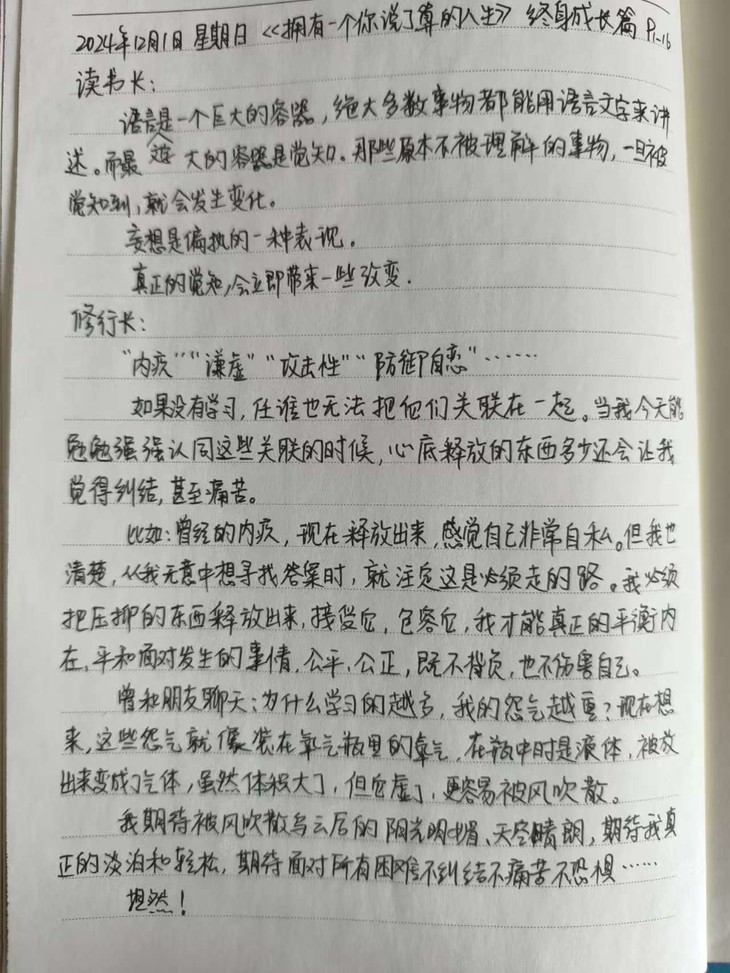 2024年12月1日 星期日 《拥有一个你说了算的人生》 终身成长篇 P1-16
读书长:
语言是一个巨大的容器,绝大多数事物都能用语言文字来讲
述。而最大的容器是觉知。那些原本不被理解的事物,一旦被
觉知到,就会发生变化。
妄想是偏执的一种表现。
真正的觉知,会立即带来一些改变.
修行长:
"内疚""谦虚""攻击性""防御自恋"……
如果没有学习,任谁也无法把他们关联在一起。当我今天能
勉勉强强认同这些关联的时候,心底释放的东西多少还会让我
觉得纠结,甚至痛苦。
比如:曾经的内疚,现在释放出来,感觉自己非常自私。但我也
清楚,从我无意中想寻找答案时,就注定这是必须走的路。我必须
把压抑的东西释放出来,接受它,包容它,我才能真正的平衡内
在,平和面对发生的事情,公平、公正,既不背负,也不伤害自己。
曾和朋友聊天:为什么学习的越多,我的怨气越重?现在想
来,这些怨气就像装在氧气瓶里的氧气,在瓶中时是液体,被放
出来变成了气体,虽然体积大了,但它虚了,更容易被风吹散。
我期待被风吹散乌云后的阳光明媚、天空晴朗,期待我真
正的淡泊和轻松,期待面对所有困难不纠结不痛苦不恐惧……
坦然!